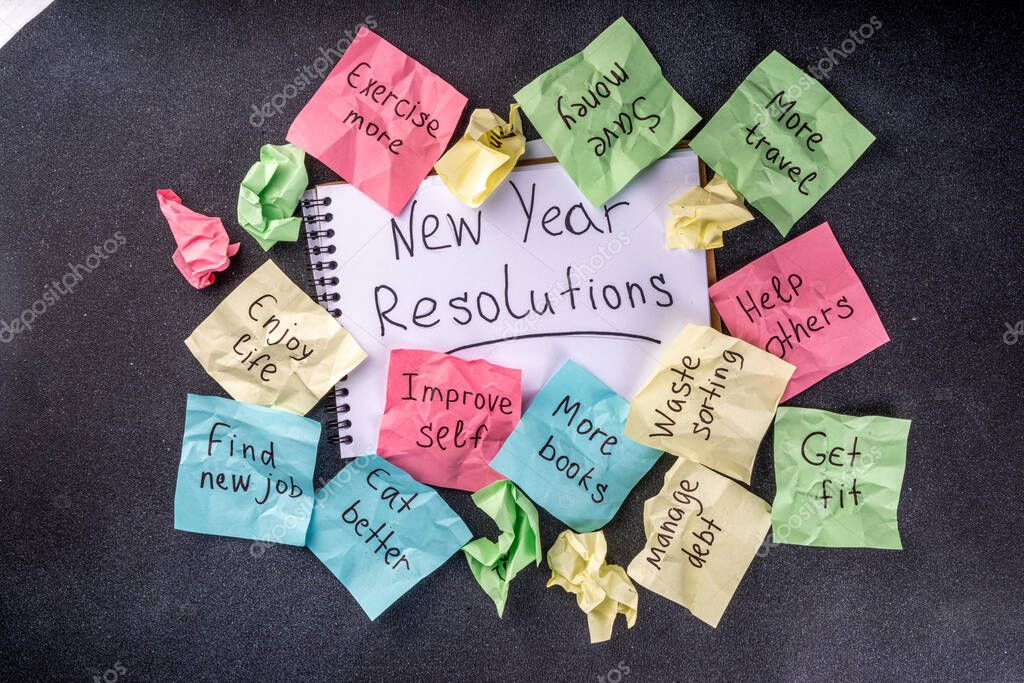 Exercise
more
Save
money
More
travel
New Year
Resolutions
Enjoy
life
Help
others
Improve
self
More
books
Waste
sorting
Find
new job
Eat
better
Manage
debt
Get
fit
depositphotos
depositphotos
depositphotos